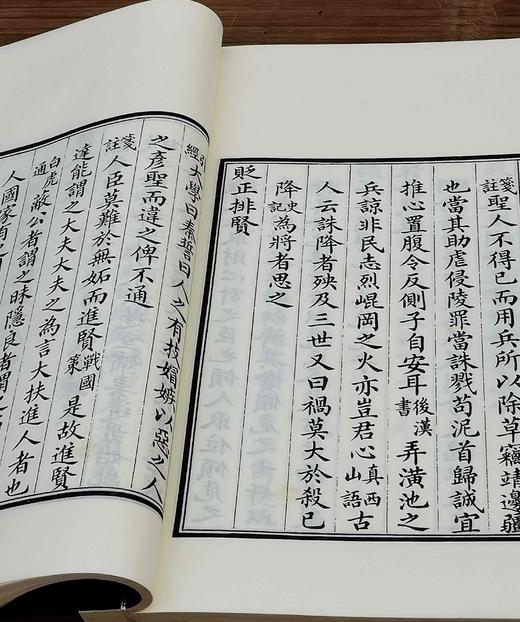 箋註聖人不得已而用兵所以除草竊靖邊疆
也當其助虐侵陵罪當誅戮苟泥首歸誠宜
推心置腹令反側子自安耳後漢書弄潢池之
兵諒非民志烈崐岡之火亦豈君心真西山語古
人云誅降者殃及三世又曰禍莫大於殺已
降史記為將者思之
貶正排賢
引經大學曰秦誓曰人之有技媢嫉以惡之人
之彥聖而違之俾不通
箋註人臣莫難於無妬而進賢戰國策是故進賢
達能謂之大夫大夫之為言大扶進人者也
白虎通蔽公者謂之昧隱良者謂之
人國家